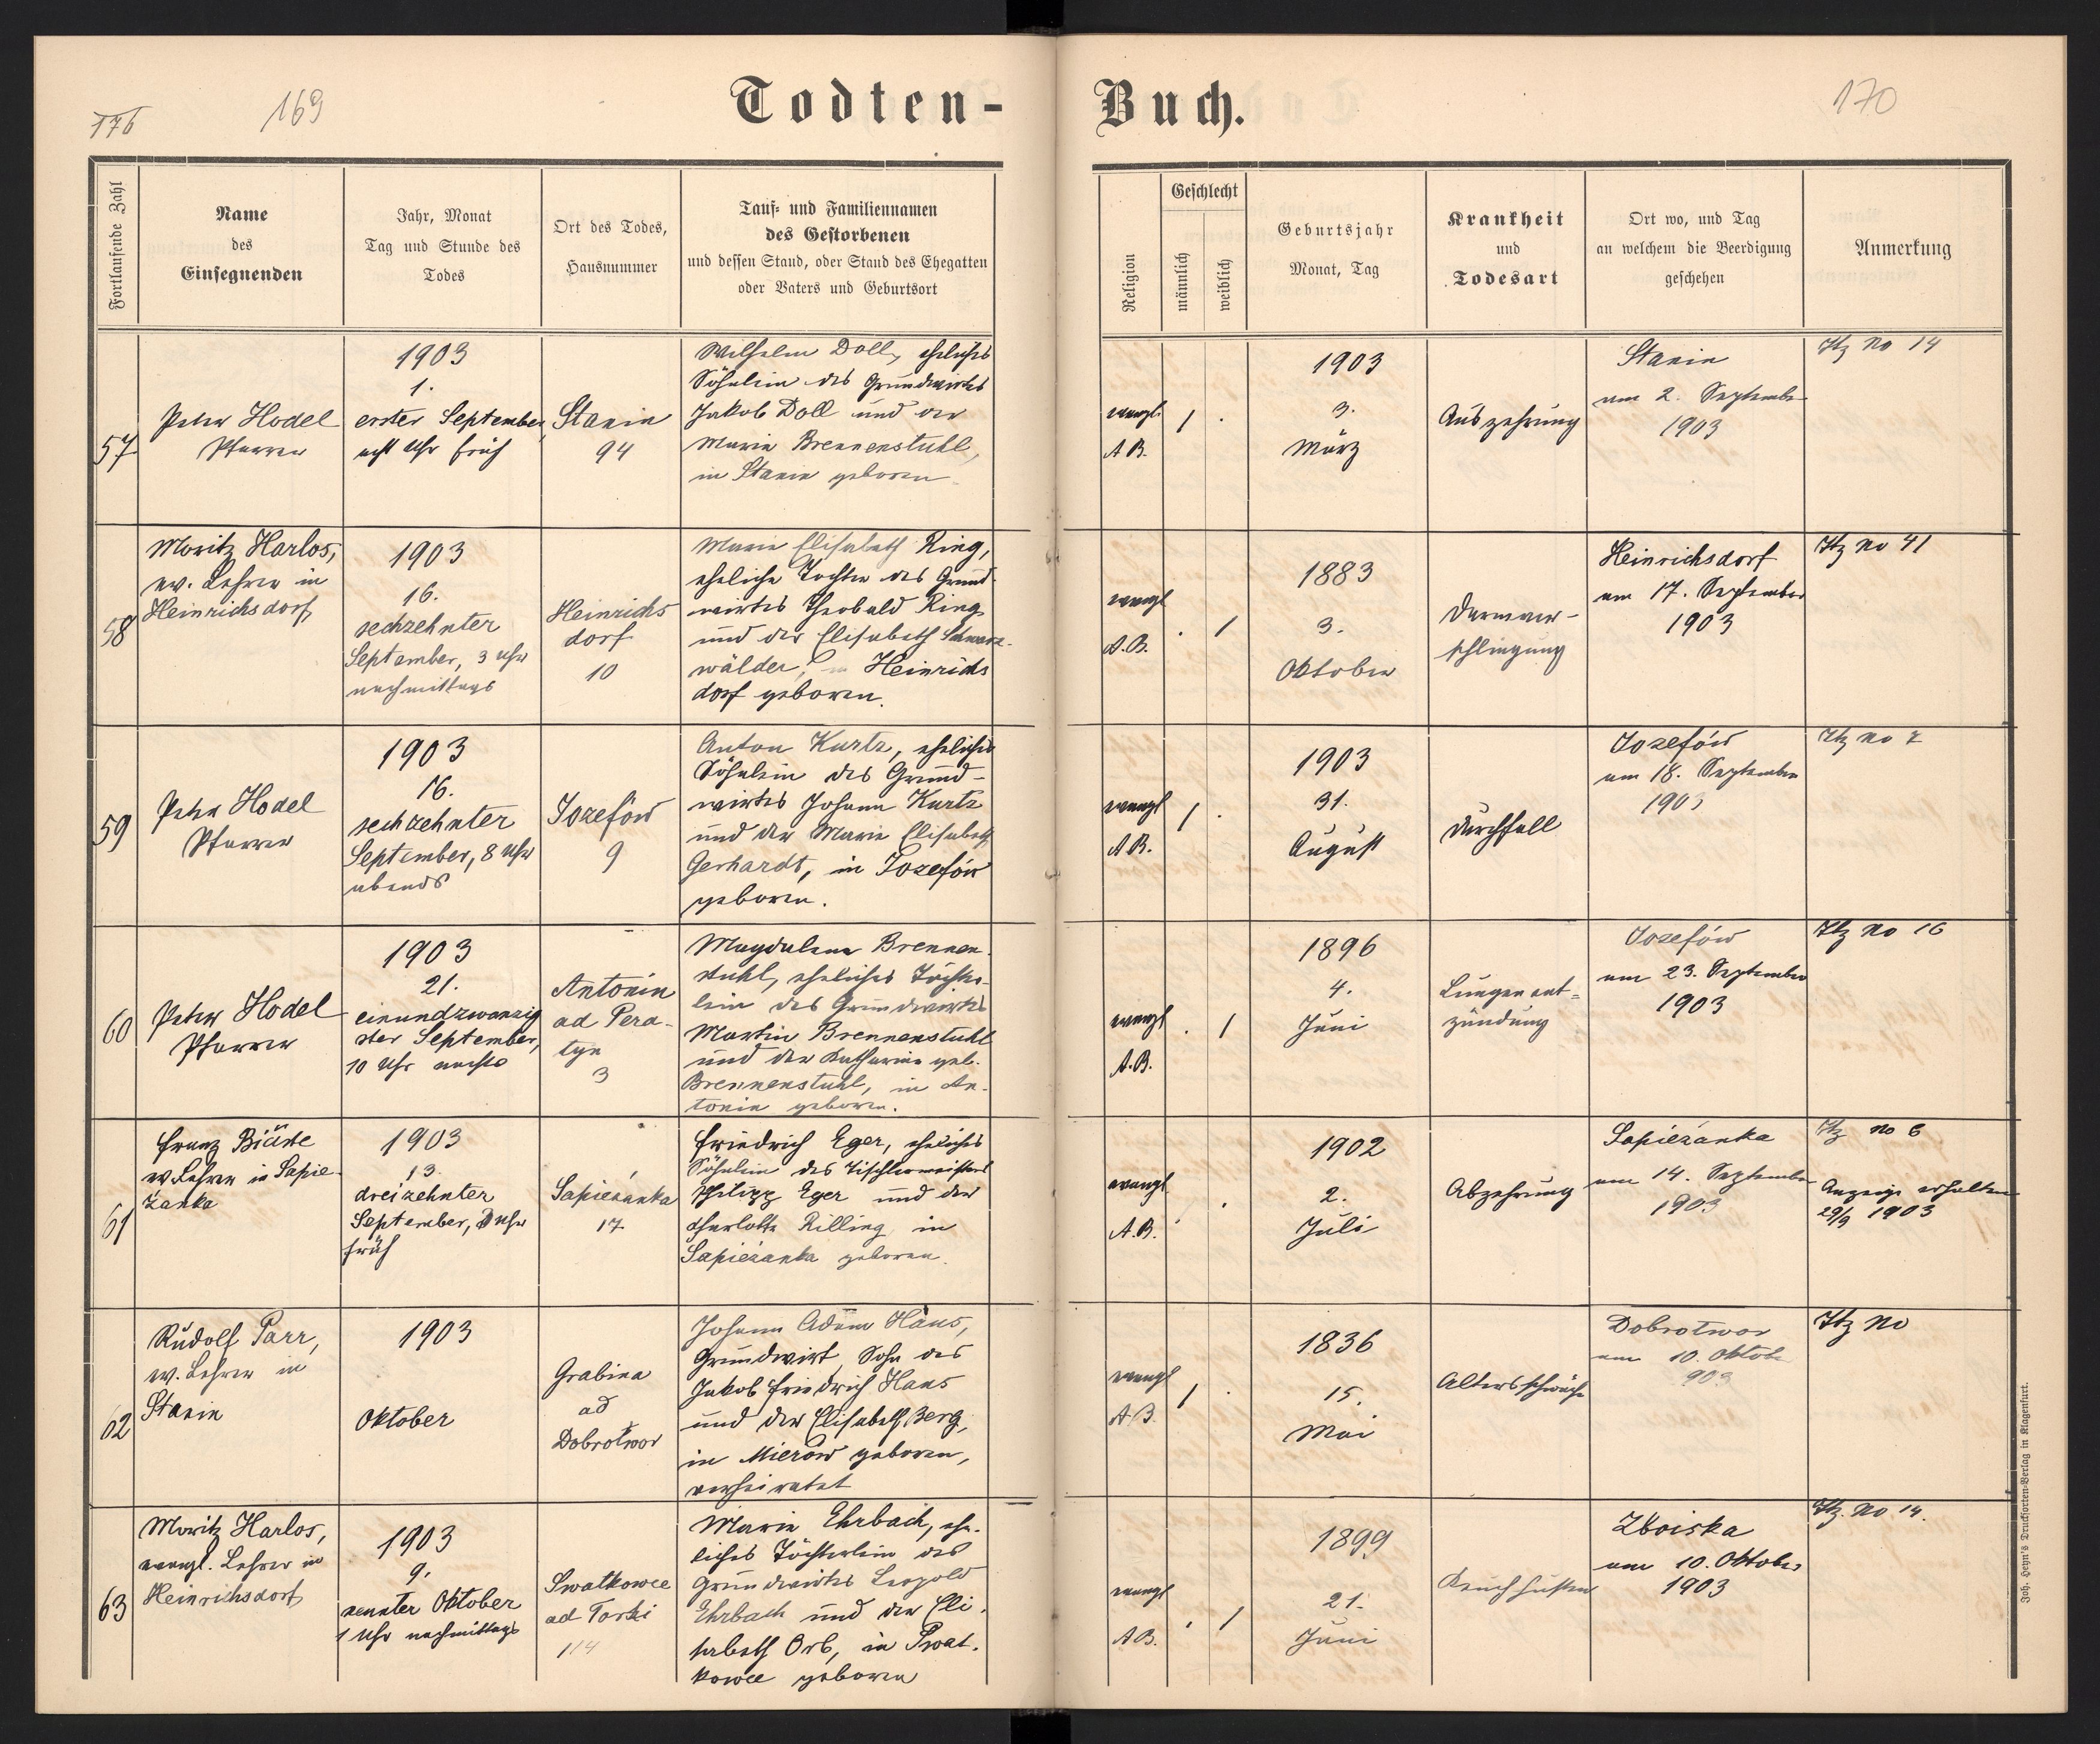 176
169
Todten-
Buch.
170
Fortlaufende Zahl
Name
des
Einsegnenden
Jahr, Monat
Tag und Stunde des
Todes
Ort des Todes,
Hausnummer
Tauf- und Familiennamen
des Gestorbenen
und dessen Stand, oder Stand des Ehegatten
oder Vaters und Geburtsort
Religion
Geschlecht
männlich
weiblich
Geburtsjahr
Monat, Tag
Krankheit
und
Todesart
Ort wo, und Tag
an welchem die Beerdigung
geschehen
Anmerkung
57
Peter Hodel
Pfarrer
1903
1.
erster September,
acht Uhr früh
Stanin
94
Wilhelm Doll, eheliches
Söhnlein des Grundwirtes
Jakob Doll und der
Maria Brennenstuhl,
in Stanin geboren.
evangl.
A B.
1 .
1903
3.
März
Auszehrung
Stanin
am 2. September
1903
Itz No 14
58
Moritz Harlos,
ev. Lehrer in
Heinrichsdorf
1903
16.
sechzehnter
September, 3 Uhr
nachmittags
Heinrichs
dorf
10
Maria Elisabeth Ring,
eheliche Tochter des Grund-
wirtes Theobald Ring
und der Elisabeth Schwarz-
wälder, in Heinrichs
dorf geboren.
evangl
A.B.
. 1
1883
3.
Oktober
Darmver-
schlingung
Heinrichsdorf
am 17. September
1903
Itz No 41
59
Peter Hodel
Pfarrer
1903
16.
sechzehnter
September, 8 Uhr
abends
Jozefów
9
Anton Kurtz, eheliches
Söhnlein des Grund-
wirtes Johann Kurtz
und der Maria Elisabeth
Gerhardt, in Jozefów
geboren.
evangl
A B.
1 .
1903
31.
August
Durchfall
Jozefów
am 18. September
1903
Itz no 7
60
Peter Hodel
Pfarrer
1903
21.
einundzwanzig
ster September,
10 Uhr nachts
Antonin
ad Pera-
tyn
3
Magdalena Brennen-
stuhl, eheliches Töchter-
lein des Grundwirtes
Martin Brennenstuhl
und der Katharina geb.
Brennenstuhl, in An-
tonin geboren.
evangl
A.B.
. 1
1896
4.
Juni
Lungenent-
zündung
Jozefów
am 23. September
1903
Itz No 16
61
Franz
ev. Lehrer in Sapie-
żanka
1903
13.
dreizehnter
September, 3 Uhr
früh
Sapieżanka
17
Friedrich Eger, eheliches
Söhnlein des Tischlermeisters
Philipp Eger und der
Charlotte Rilling in
Sapieżanka geboren.
evangl
A.B.
1902
2.
Juli
Abzehrung
Sapieżanka
am 14. September
1903
Itz no 6
Anzeige erhalten
29/9 1903
62
Rudolf Parr,
ev. Lehrer in
Stanin
1903
Oktober
Grabina
ad
Dobrotwor
Johann Adam Haus,
Grundwirt, Sohn des
Jakob Friedrich Haus
und der Elisabeth Berg,
in Mierów geboren,
verheiratet
evangl
A B.
1 .
1836
15.
Mai
Altersschwäche
Dobrotwor
am 10. Oktober
903
Itz No
63
Moritz Harlos,
evangl. Lehrer in
Heinrichsdorf
1903
9.
neunter Oktober
1 Uhr nachmittags
Swatkowce
ad Torki
114
Maria Ehrbach, ehe-
liches Töchterlein des
Grundwirtes Leopold
Ehrbach und der Eli-
sabeth Orb, in Swat-
kowce geboren
evangl
A B.
. 1
1899
21.
Juni
Keuchhusten
Zboiska
am 10. Oktober
1903
Itz. No 14.
Joh. Heyn's Drucksorten-Verlag in Klagenfurt.